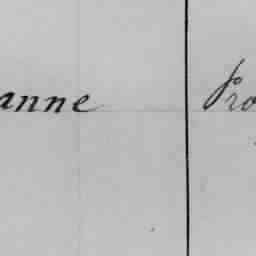 anne Pro